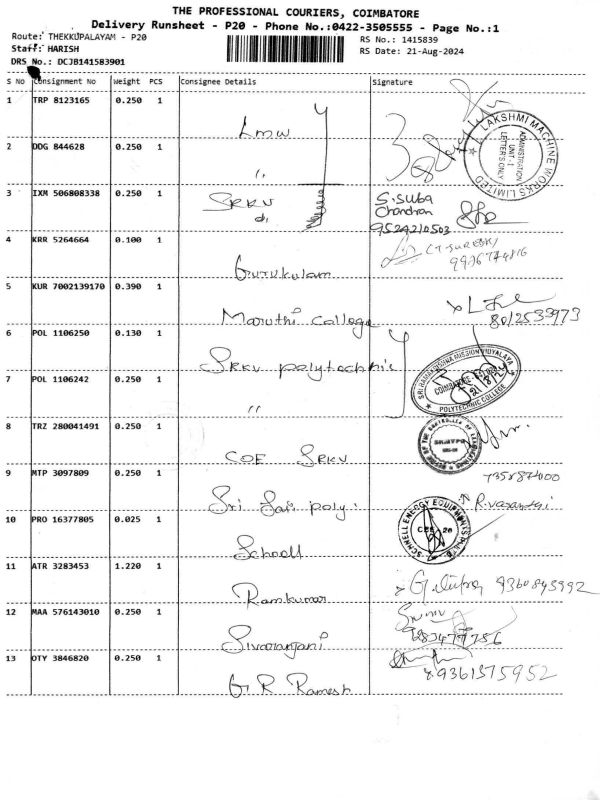 THE PROFESSIONAL COURIERS, COIMBATORE
Delivery Runsheet - P20 - Phone No.:0422-3505555 - Page No.:1
Route: THEKKUPALAYAM - P20
RS No.: 1415839
Staff: HARISH
RS Date: 21-Aug-2024
DRS No.: DCJB141583901
S No Consignment No Weight PCS Consignee Details Signature
1 TRP 8123165 0.250 1
Lmw
LAKSHMI MACHINE WORKS LIMITED
ADMINISTRATION
UNIT-1
LETTERS ONLY
2 DDG 844628 0.250 1
"
3 IXM 506808338 0.250 1
SRKV
S.Suba
Chandran
9524210503
4 KRR 5264664 0.100 1
Gurukulam
CT.SURESH
5 KUR 7002139170 0.390 1
Maruthi College
8012533973
6 POL 1106250 0.130 1
SRKV polytechnic
SRI RAMAKRISHNA MISSION VIDYALAYA
COIMBATORE
21/8/24
POLYTECHNIC COLLEGE
7 POL 1106242 0.250 1
"
8 TRZ 280041491 0.250 1
COE SRKV
9 MTP 3097809 0.250 1
Sri Sai poly
10 PRO 16377805 0.025 1
Schnell
SCHNELL ENERGY EQUIPMENTS
R.vasanthi
11 ATR 3283453 1.220 1
Ramkumar
9360843992
12 MAA 576143010 0.250 1
Sivaranjani
13 OTY 3846820 0.250 1
G R Ramesh
9361375952